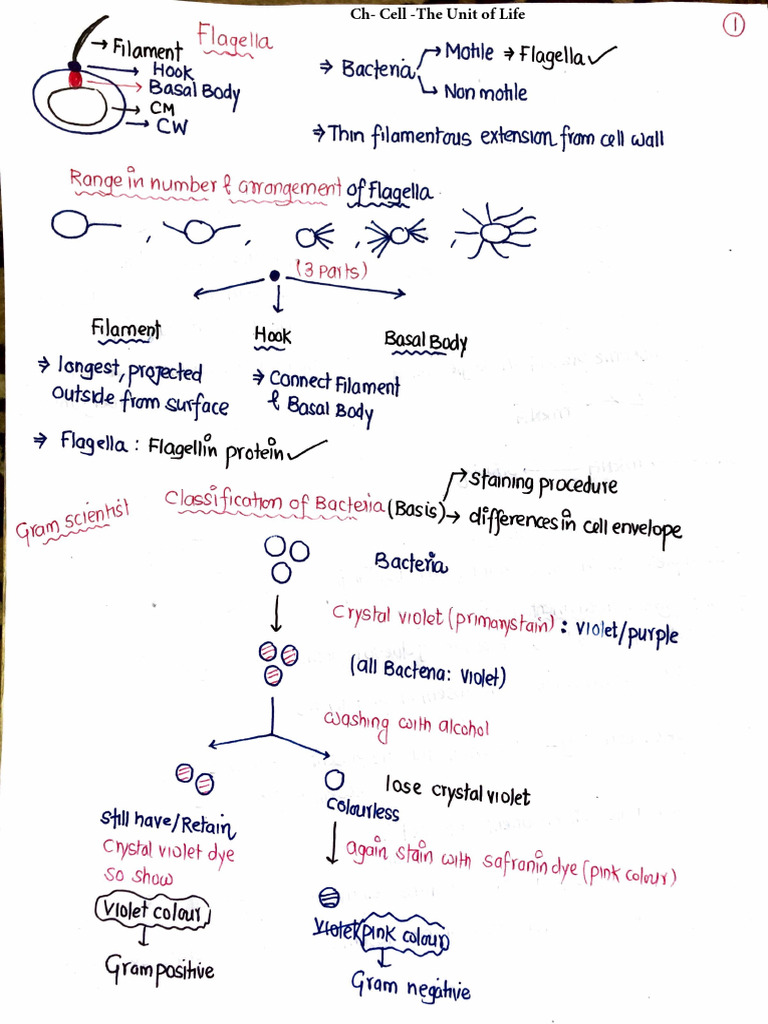 Ch- Cell -The Unit of Life
1
Flagella
Filament
Hook
Basal Body
CM
CW
⇒ Bacteria
Motile → Flagella ✓
Non motile
⇒ Thin filamentous extension from cell wall
Range in number & arrangement of Flagella
(3 parts)
Filament
Hook
Basal Body
⇒ longest, projected
outside from surface
⇒ Connect Filament
& Basal Body
⇒ Flagella : Flagellin protein ✓
Gram scientist
Classification of Bacteria (Basis)
→ staining procedure
→ differences in cell envelope
Bacteria
Crystal violet (primary stain) : violet/purple
(all Bacteria: violet)
washing with alcohol
still have/Retain
Crystal violet dye
so show
Violet colour
Gram positive
lose crystal violet
Colourless
again stain with safranin dye (pink colour)
Violet pink colour
Gram negative